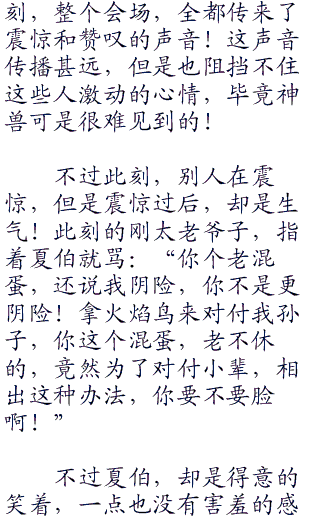 刻，整个会场，全都传来了
震惊和赞叹的声音！这声音
传播甚远，但是也阻挡不住
这些人激动的心情，毕竟神
兽可是很难见到的！
不过此刻，别人在震
惊，但是震惊过后，却是生
气！此刻的刚太老爷子，指
着夏伯就骂：“你个老混
蛋，还说我阴险，你不是更
阴险！拿火焰鸟来对付我孙
子，你这个混蛋，老不休
的，竟然为了对付小辈，相
出这种办法，你要不要脸
啊！”
不过夏伯，却是得意的
笑着，一点也没有害羞的感